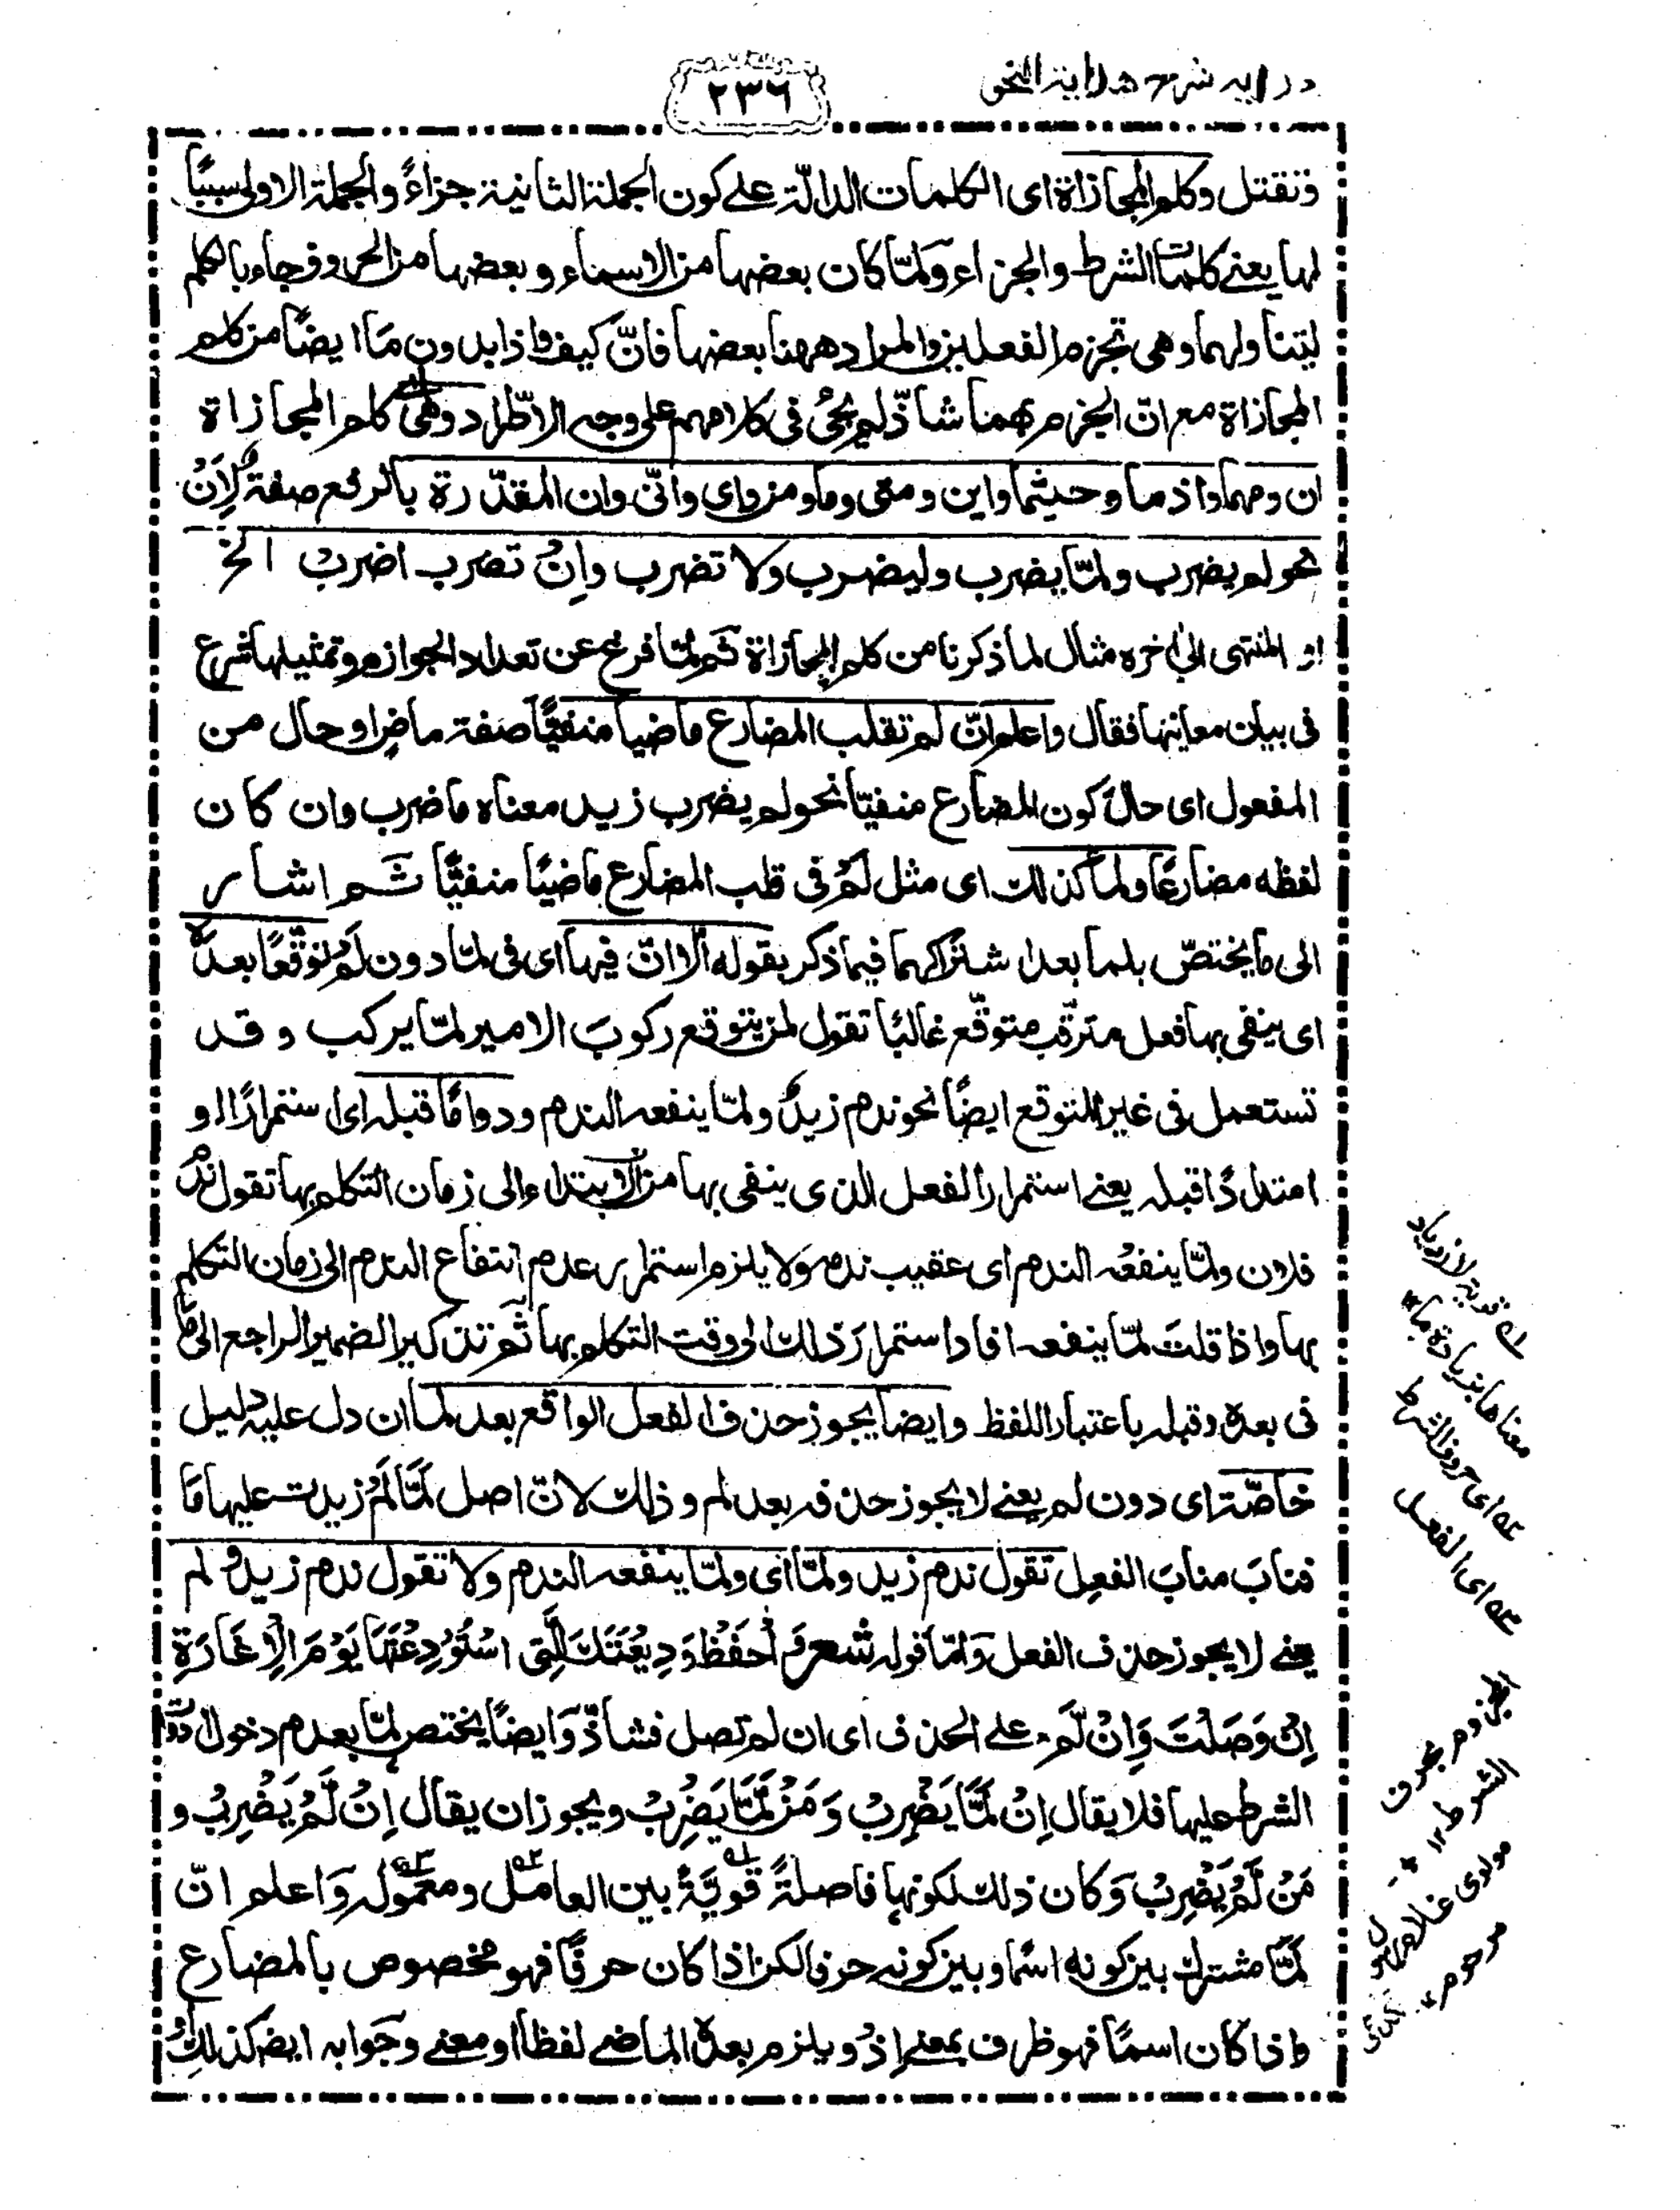 درایہ شرح هدایة النحو
٢٣٦
فنقتل وكلم المجازاة اى الكلمات الدالّة على كون الجملة الثانية جزاءً والجملة الاولى سببًا
لها يعنى كلمات الشرط والجزاء ولمّا كان بعضها من الاسماء وبعضها من الحروف جاء بالكلم
ليتناولهما وهى تجزم الفعلين والمراد ههنا بعضها فانّ كيف واذا بدون مَا ايضًا من كلم
المجازاة مع انّ الجزم بهما شاذّ لم يجئ فى كلامهم على وجه الاطّراد وهى كلم المجازاة
ان ومهما واذما وحيثما واين ومتى وما ومن واى وانّى وان المقدّرة بالرفع صفة لِاَنْ
نحو لم يضرب ولمّا يضرب وليضرب ولا تضرب واِنْ تضرب اضربْ الخ
او المنتهى الىٰ اخره مثال لما ذكرنا من كلم المجازاة ثم لمّا فرغ عن تعداد الجوازم وتمثيلها شرع
فى بيان معانيها فقال واعلم انّ لم تقلب المضارع ماضيا منفيًّا صفة ماضٍ او حال من
المفعول اى حالَ كون المضارع منفيّا نحو لم يضرب زيد معناه ما ضرب وان كان
لفظه مضارعًا ولما كذلك اى مثل لَمْ فى قلب المضارع ماضيًا منفيًّا ثم اشار
الى ما يختصّ بلما بعد اشتراكهما فيما ذكر بقوله الّا انّ فيها اى فى لمّا دون لَمْ توقّعًا بعدَهٗ
اى ينفى بها فعل مترقّب متوقّع غالبًا تقول لمن يتوقع ركوبَ الامير لمّا يركب وقد
تستعمل فى غير المتوقع ايضًا نحو ندم زيدٌ ولمّا ينفعه الندم ودوامًا قبله اى استمرارًا او
امتدادًا قبله يعنى استمرار الفعل الذى ينفى بها من الابتداء الى زمان التكلم بها تقول ندم
فلان ولمّا ينفعْه الندم اى عقيب ندمه ولا يلزم استمرار عدم انتفاع الندم الى زمان التكلم
بها واذا قلتَ لمّا ينفعه افاد استمرارَ ذلك الى وقت التكلم بها ثم تذكير الضمير الراجع الى لمّا
فى بعدهٗ وقبله باعتبار اللفظ وايضا يجوز حذف الفعل الواقع بعد لما ان دل عليه دليل
خاصّة اى دون لم يعنى لا يجوز حذفه بعد لم وذلك لانّ اصل لَمَّا لَمْ زيدت عليها مَا
فنابَ منابَ الفعلِ تقول ندم زيد ولمّا اى ولمّا ينفعه الندم ولا تقول ندم زيدٌ ولم
يعنى لا يجوز حذف الفعل وَامّا قوله شعر اُحْفَظْ وَدِيْعَتَكَ الَّتِى اسْتُوْدِعْتَهَا يَوْمَ الْاِغَارَةِ
اِنْ وَصَلْتَ وَاِنْ لَّمْ على الحذف اى ان لم تصل فشاذّ وَايضًا يختص لمّا بعدم دخول ادوات
الشرط عليها فلا يقال اِنْ لَّمَّا يَضْرِبْ وَمَنْ لَّمَّا يَضْرِبْ ويجوز ان يقال اِنْ لَّمْ يَضْرِبْ و
مَنْ لَّمْ يَضْرِبْ وَكان ذلك لكونها فاصلةً قويّةً بين العامل ومعموله وَاعلم انّ
لَمَّا مشترك بين كونه اسْمًا وبين كونه حرفا لكن اذا كان حرفًا فهو مخصوص بالمضارع
واذا كان اسمًا فهو ظرف بمعنى اِذْ ويلزم بعدهٗ الماضى لفظا او معنى وجوابه ايضًا كذلك او
لم قوية لازدياد
معناها بزيادة ما
اى حروف الشرط
اى الفعل
المجزوم بحرف
الشرط ١٢
مولوى غلام
مرحوم